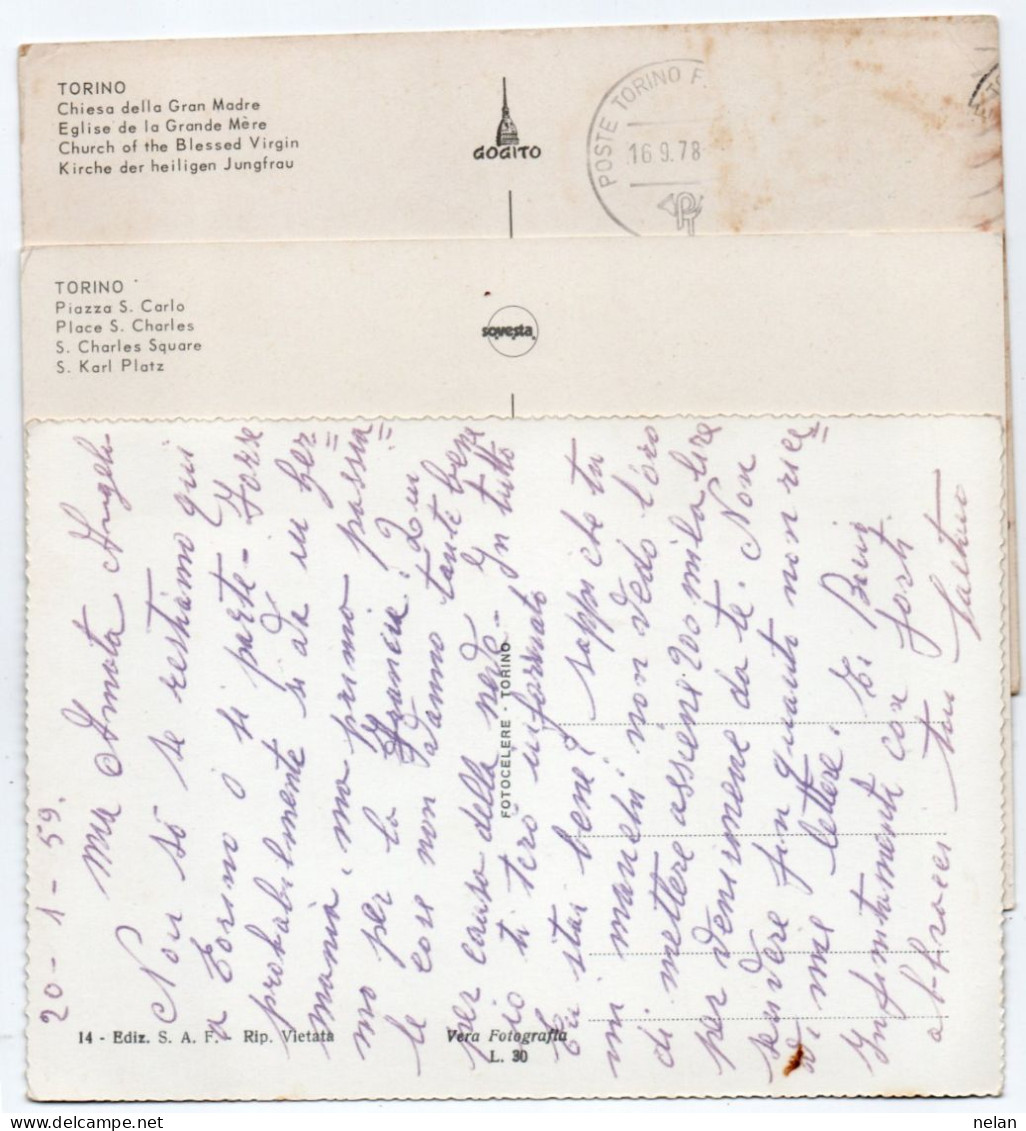 TORINO
Chiesa della Gran Madre
Eglise de la Grande Mère
Church of the Blessed Virgin
Kirche der heiligen Jungfrau
GOGITO
POSTE TORINO F
16.9.78
TORINO
Piazza S. Carlo
Place S. Charles
S. Charles Square
S. Karl Platz
sovesta
20-1-59.
Mia Amata Angeli
Non sò se restiamo qui
a Torino o si parte - Forse
probabilmente si và in Ger=
mania, ma primo passia=
mo per la Francia:
le cose non vanno tante bene
per causa della neve - In tutto
ciò ti terò informato
Tu stai bene? sappi che tu
mi manchi: non vedo l'óra
di mettere assieme 200 mila lire
per venirmene da te. Non
scrivere fin quanto non rice=
vi mie lettere. Ti
Infinitamente con forti
abbracci tuo
FOTOCELERE - TORINO
14 - Ediz. S. A. F. - Rip. Vietata
Vera Fotografia
L. 30
nelan